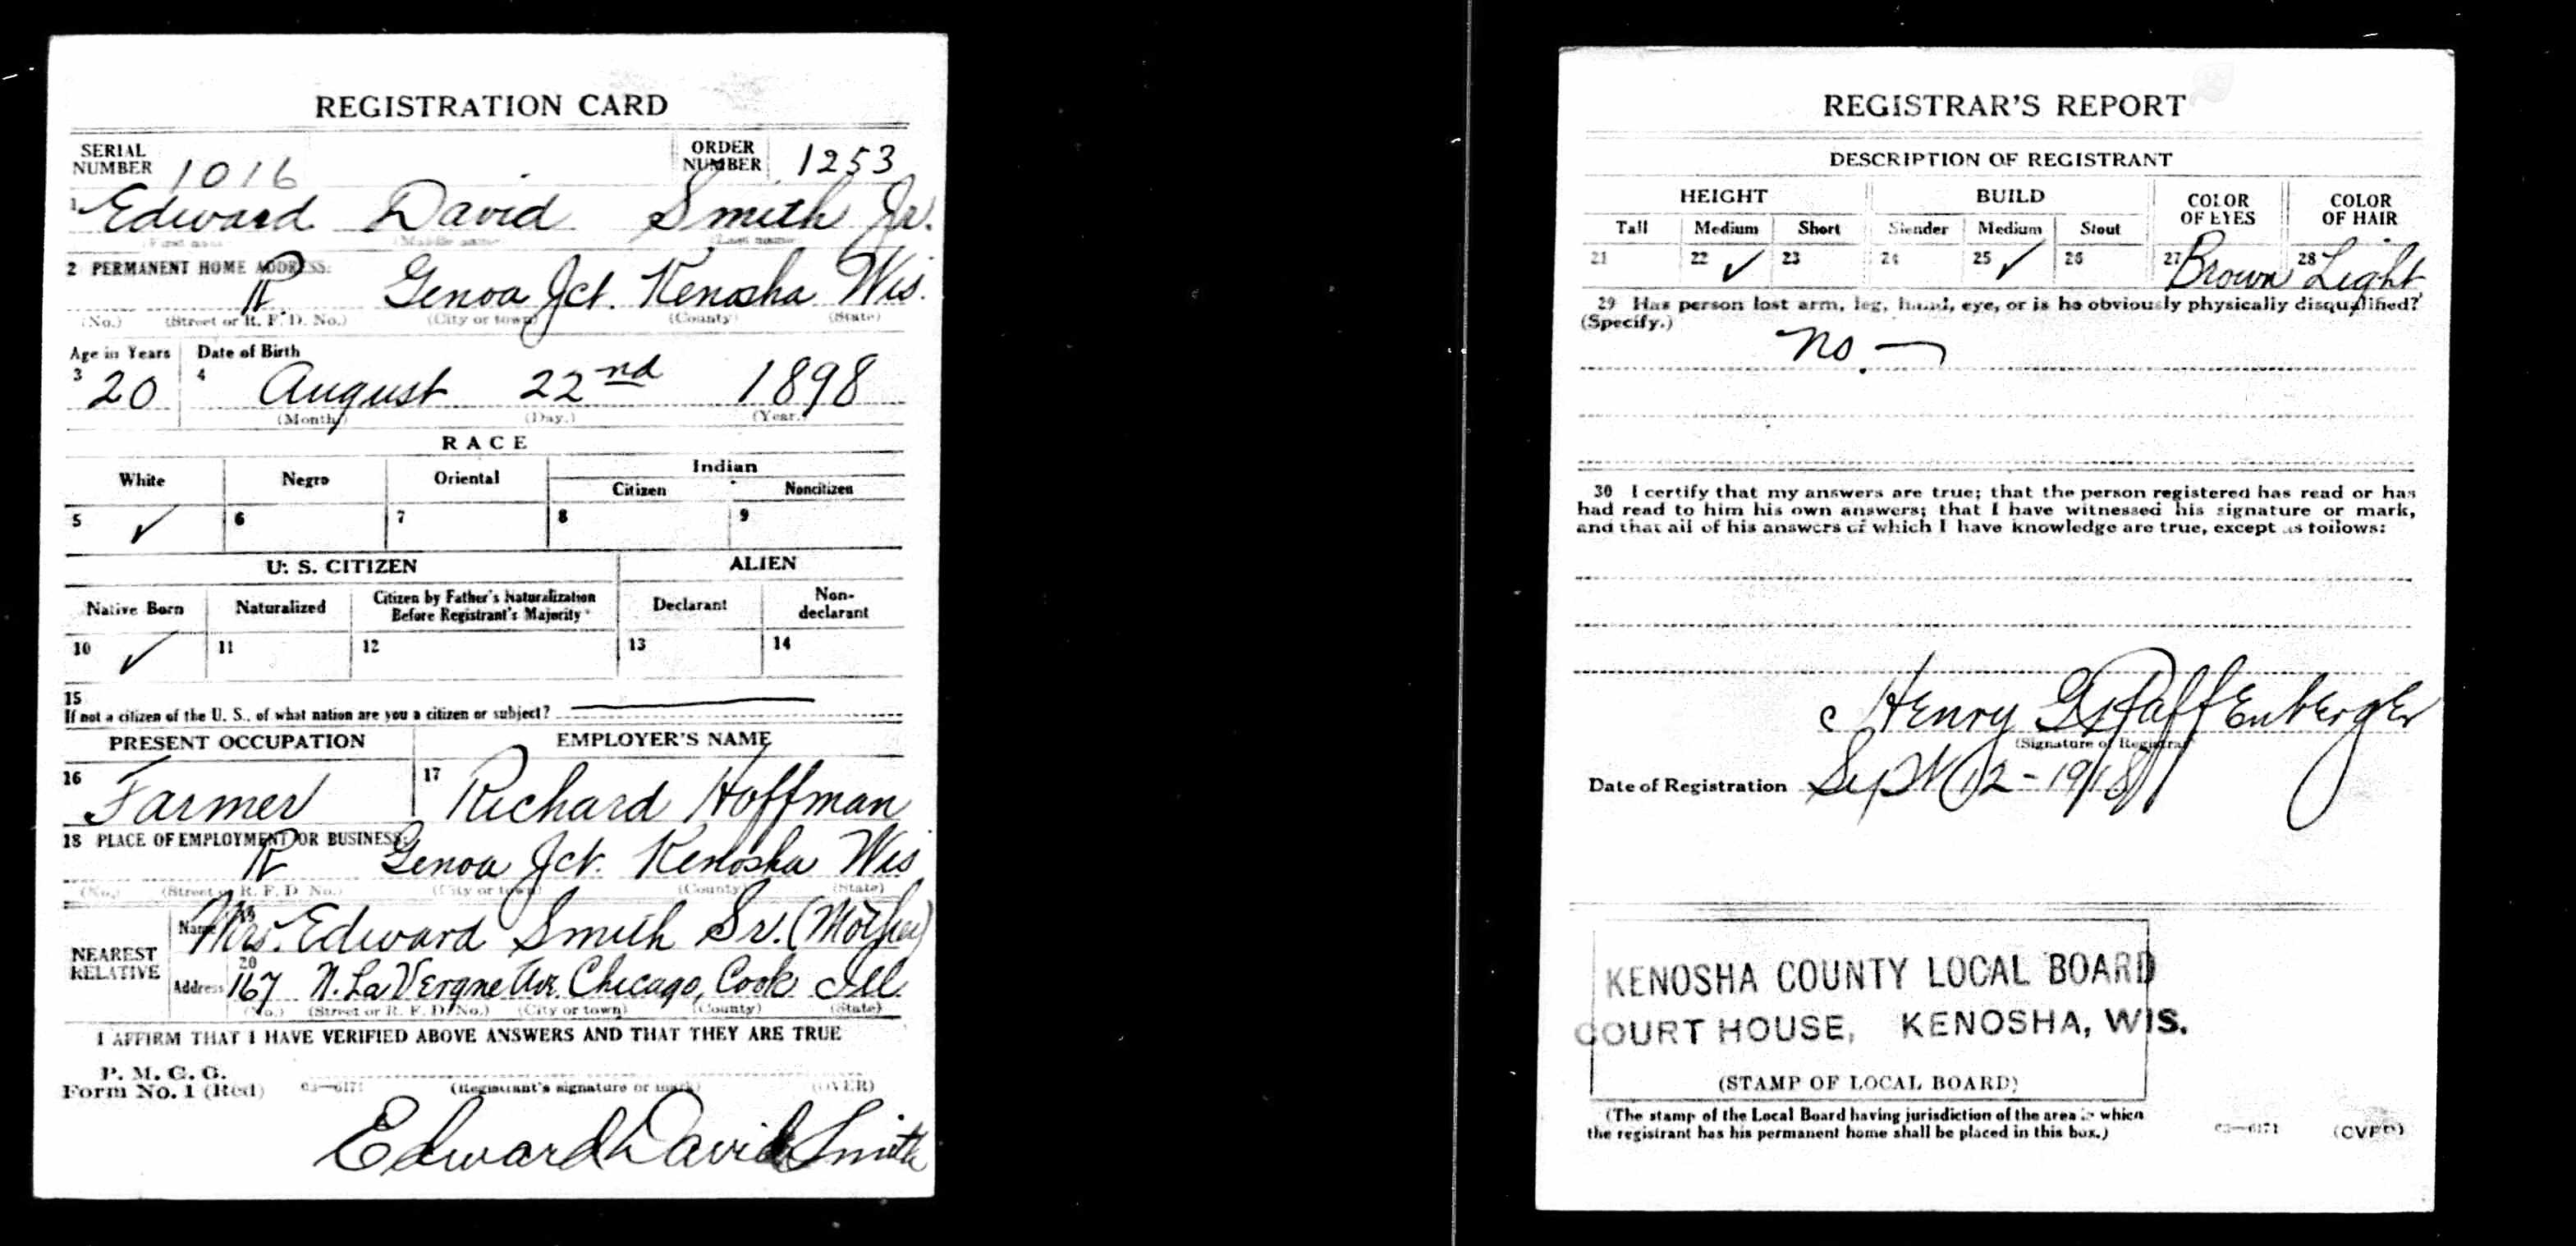 REGISTRATION CARD
SERIAL NUMBER 1016 ORDER NUMBER 1253
1 Edward David Smith Jr.
(First name) (Middle name) (Last name)
2 PERMANENT HOME ADDRESS:
R Genoa Jct. Kenosha Wis.
(No.) (Street or R. F. D. No.) (City or town) (County) (State)
Age in Years Date of Birth
3 20 4 August 22nd 1898
(Month) (Day.) (Year.)
RACE
White Negro Oriental Indian
Citizen Noncitizen
5 ✓ 6 7 8 9
U. S. CITIZEN ALIEN
Native Born Naturalized Citizen by Father's Naturalization Before Registrant's Majority Declarant Non-declarant
10 ✓ 11 12 13 14
15
If not a citizen of the U. S., of what nation are you a citizen or subject?
PRESENT OCCUPATION EMPLOYER'S NAME
16 Farmer 17 Richard Hoffman
18 PLACE OF EMPLOYMENT OR BUSINESS:
R Genoa Jct. Kenosha Wis
(No.) (Street or R. F. D. No.) (City or town) (County) (State)
NEAREST RELATIVE
Name 19 Mrs. Edward Smith Sr. (Mother)
Address 20 167 N. LaVergne Ave. Chicago, Cook Ill.
(No.) (Street or R. F. D. No.) (City or town) (County) (State)
I AFFIRM THAT I HAVE VERIFIED ABOVE ANSWERS AND THAT THEY ARE TRUE
P. M. G. O.
Form No. 1 (Red) 03—6171 (Registrant's signature or mark) (OVER)
Edward David Smith
REGISTRAR'S REPORT
DESCRIPTION OF REGISTRANT
HEIGHT BUILD COLOR OF EYES COLOR OF HAIR
Tall Medium Short Slender Medium Stout
21 22 ✓ 23 24 25 ✓ 26 27 Brown 28 Light
29 Has person lost arm, leg, hand, eye, or is he obviously physically disqualified?
(Specify.)
no —
30 I certify that my answers are true; that the person registered has read or has
had read to him his own answers; that I have witnessed his signature or mark,
and that all of his answers of which I have knowledge are true, except as follows:
Henry G Pfaffenberger
(Signature of Registrar)
Date of Registration Sept 12-1918
KENOSHA COUNTY LOCAL BOARD
COURT HOUSE, KENOSHA, WIS.
(STAMP OF LOCAL BOARD)
(The stamp of the Local Board having jurisdiction of the area in which
the registrant has his permanent home shall be placed in this box.)
03—6171 (OVER)